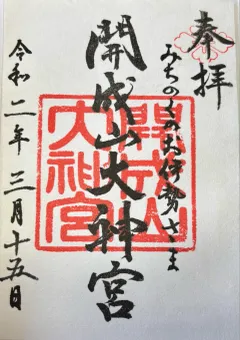 奉拝
みちのくのお伊勢さま
開成山大神宮
令和二年三月十五日
開成山
大神宮